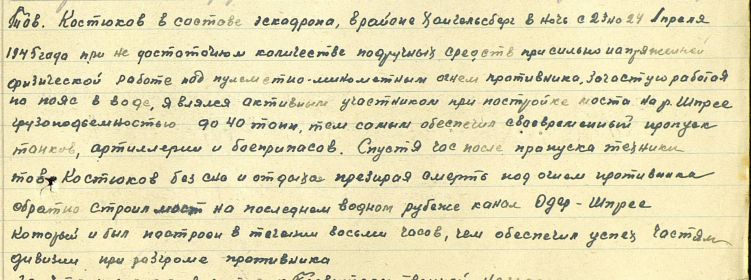 Тов. Костюков в составе эскадрона, в районе Хангельсберг в ночь с 23 на 24 Апреля
1945 года при не достаточном количестве подручных средств при сильно напряженной
физической работе под пулеметно-минометным огнем противника, зачастую работая
по пояс в воде, являлся активным участником при постройке моста на р. Шпрее
грузоподъемностью до 40 тонн, тем самым обеспечил своевременный пропуск
танков, артиллерии и боеприпасов. Спустя час после пропуска техники
тов. Костюков без сна и отдыха презирая смерть под огнем противника
обратно строил мост на последнем водном рубеже канал Одер-Шпрее
который и был построен в течении восьми часов, чем обеспечил успех частям
дивизии при разгроме противника